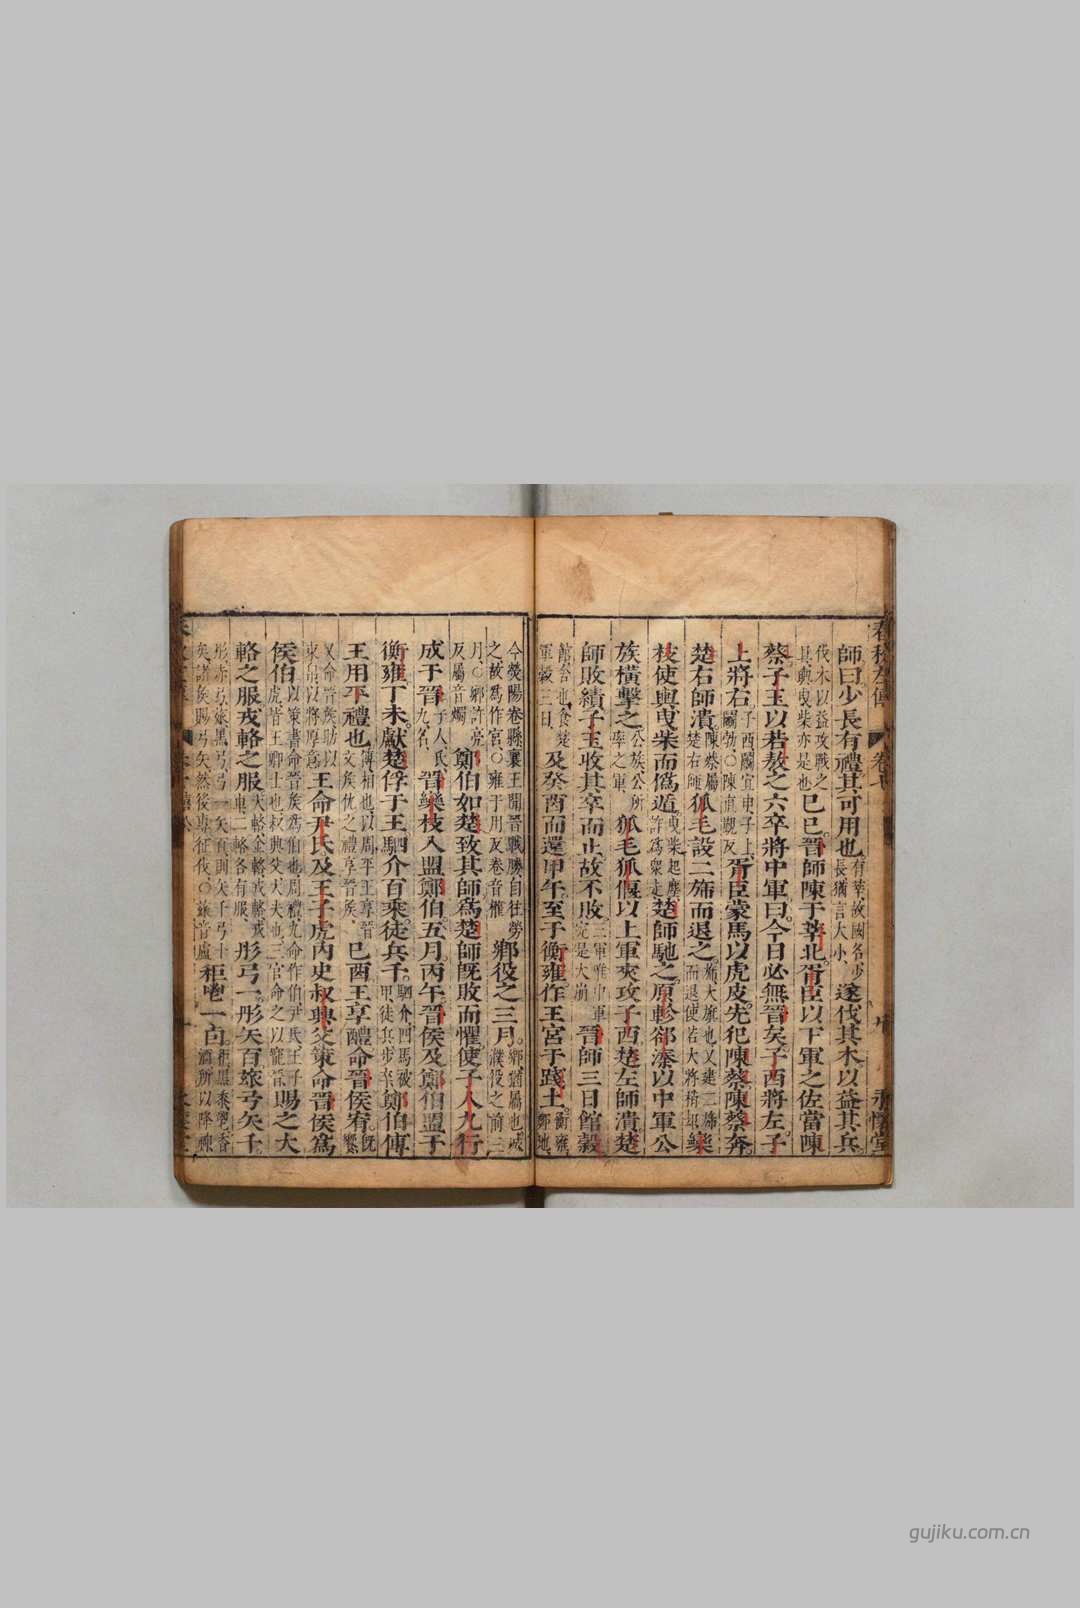 師曰少長有禮其可用也有莘故國名少長猶言大小遂伐其木以益其兵
伐木以益攻戰之具輿曳柴亦是也己巳晉師陳于莘北胥臣以下軍之佐當陳
蔡子玉以若敖之六卒將中軍曰今日必無晉矣子西將左子
上將右子西鬬宜申子上鬬勃○陳直覲反胥臣蒙馬以虎皮先犯陳蔡陳蔡奔
楚右師潰陳蔡屬楚右師狐毛設二旆而退之旆大旗也又建二旆而退使若大將稍却欒
枝使輿曳柴而僞遁曳柴起塵詐爲衆走楚師馳之原軫郤溱以中軍公
族橫擊之公族公所率之軍狐毛狐偃以上軍夾攻子西楚左師潰楚
師敗績子玉收其卒而止故不敗三軍唯中軍完是大崩晉師三日館穀
館舍也食楚軍穀三日及癸酉而還甲午至于衡雍作王宮于踐土衡雍鄭地
今滎陽卷縣襄王聞晉戰勝自往勞之故爲作宮○雍于用反卷音權鄉役之三月鄉猶屬也城濮役之前三
月○鄉許亮反屬音燭鄭伯如楚致其師爲楚師旣敗而懼使子人九行
成于晉子人氏九名晉欒枝入盟鄭伯五月丙午晉侯及鄭伯盟于
衡雍丁未獻楚俘于王駟介百乘徒兵千駟介四馬被甲徒兵步卒鄭伯傅
王用平禮也傅相也以周平王享晉文侯仇之禮享晉侯己酉王享醴命晉侯宥旣饗
又命晉侯助以束帛以將厚意王命尹氏及王子虎內史叔興父策命晉侯爲
侯伯以策書命晉侯爲伯也周禮九命作伯尹氏王子虎皆王卿士也叔興父大夫也三官命之以寵晉賜之大
輅之服戎輅之服大輅金輅戎輅戎車二輅各有服彤弓一彤矢百玈弓矢千
彤赤弓玈黑弓弓一矢百則矢千弓十矣諸侯賜弓矢然後專征伐○玈音盧秬鬯一卣秬黑黍鬯香酒所以降神
春秋左傳
卷七
十
永懷堂
gujiku.com.cn